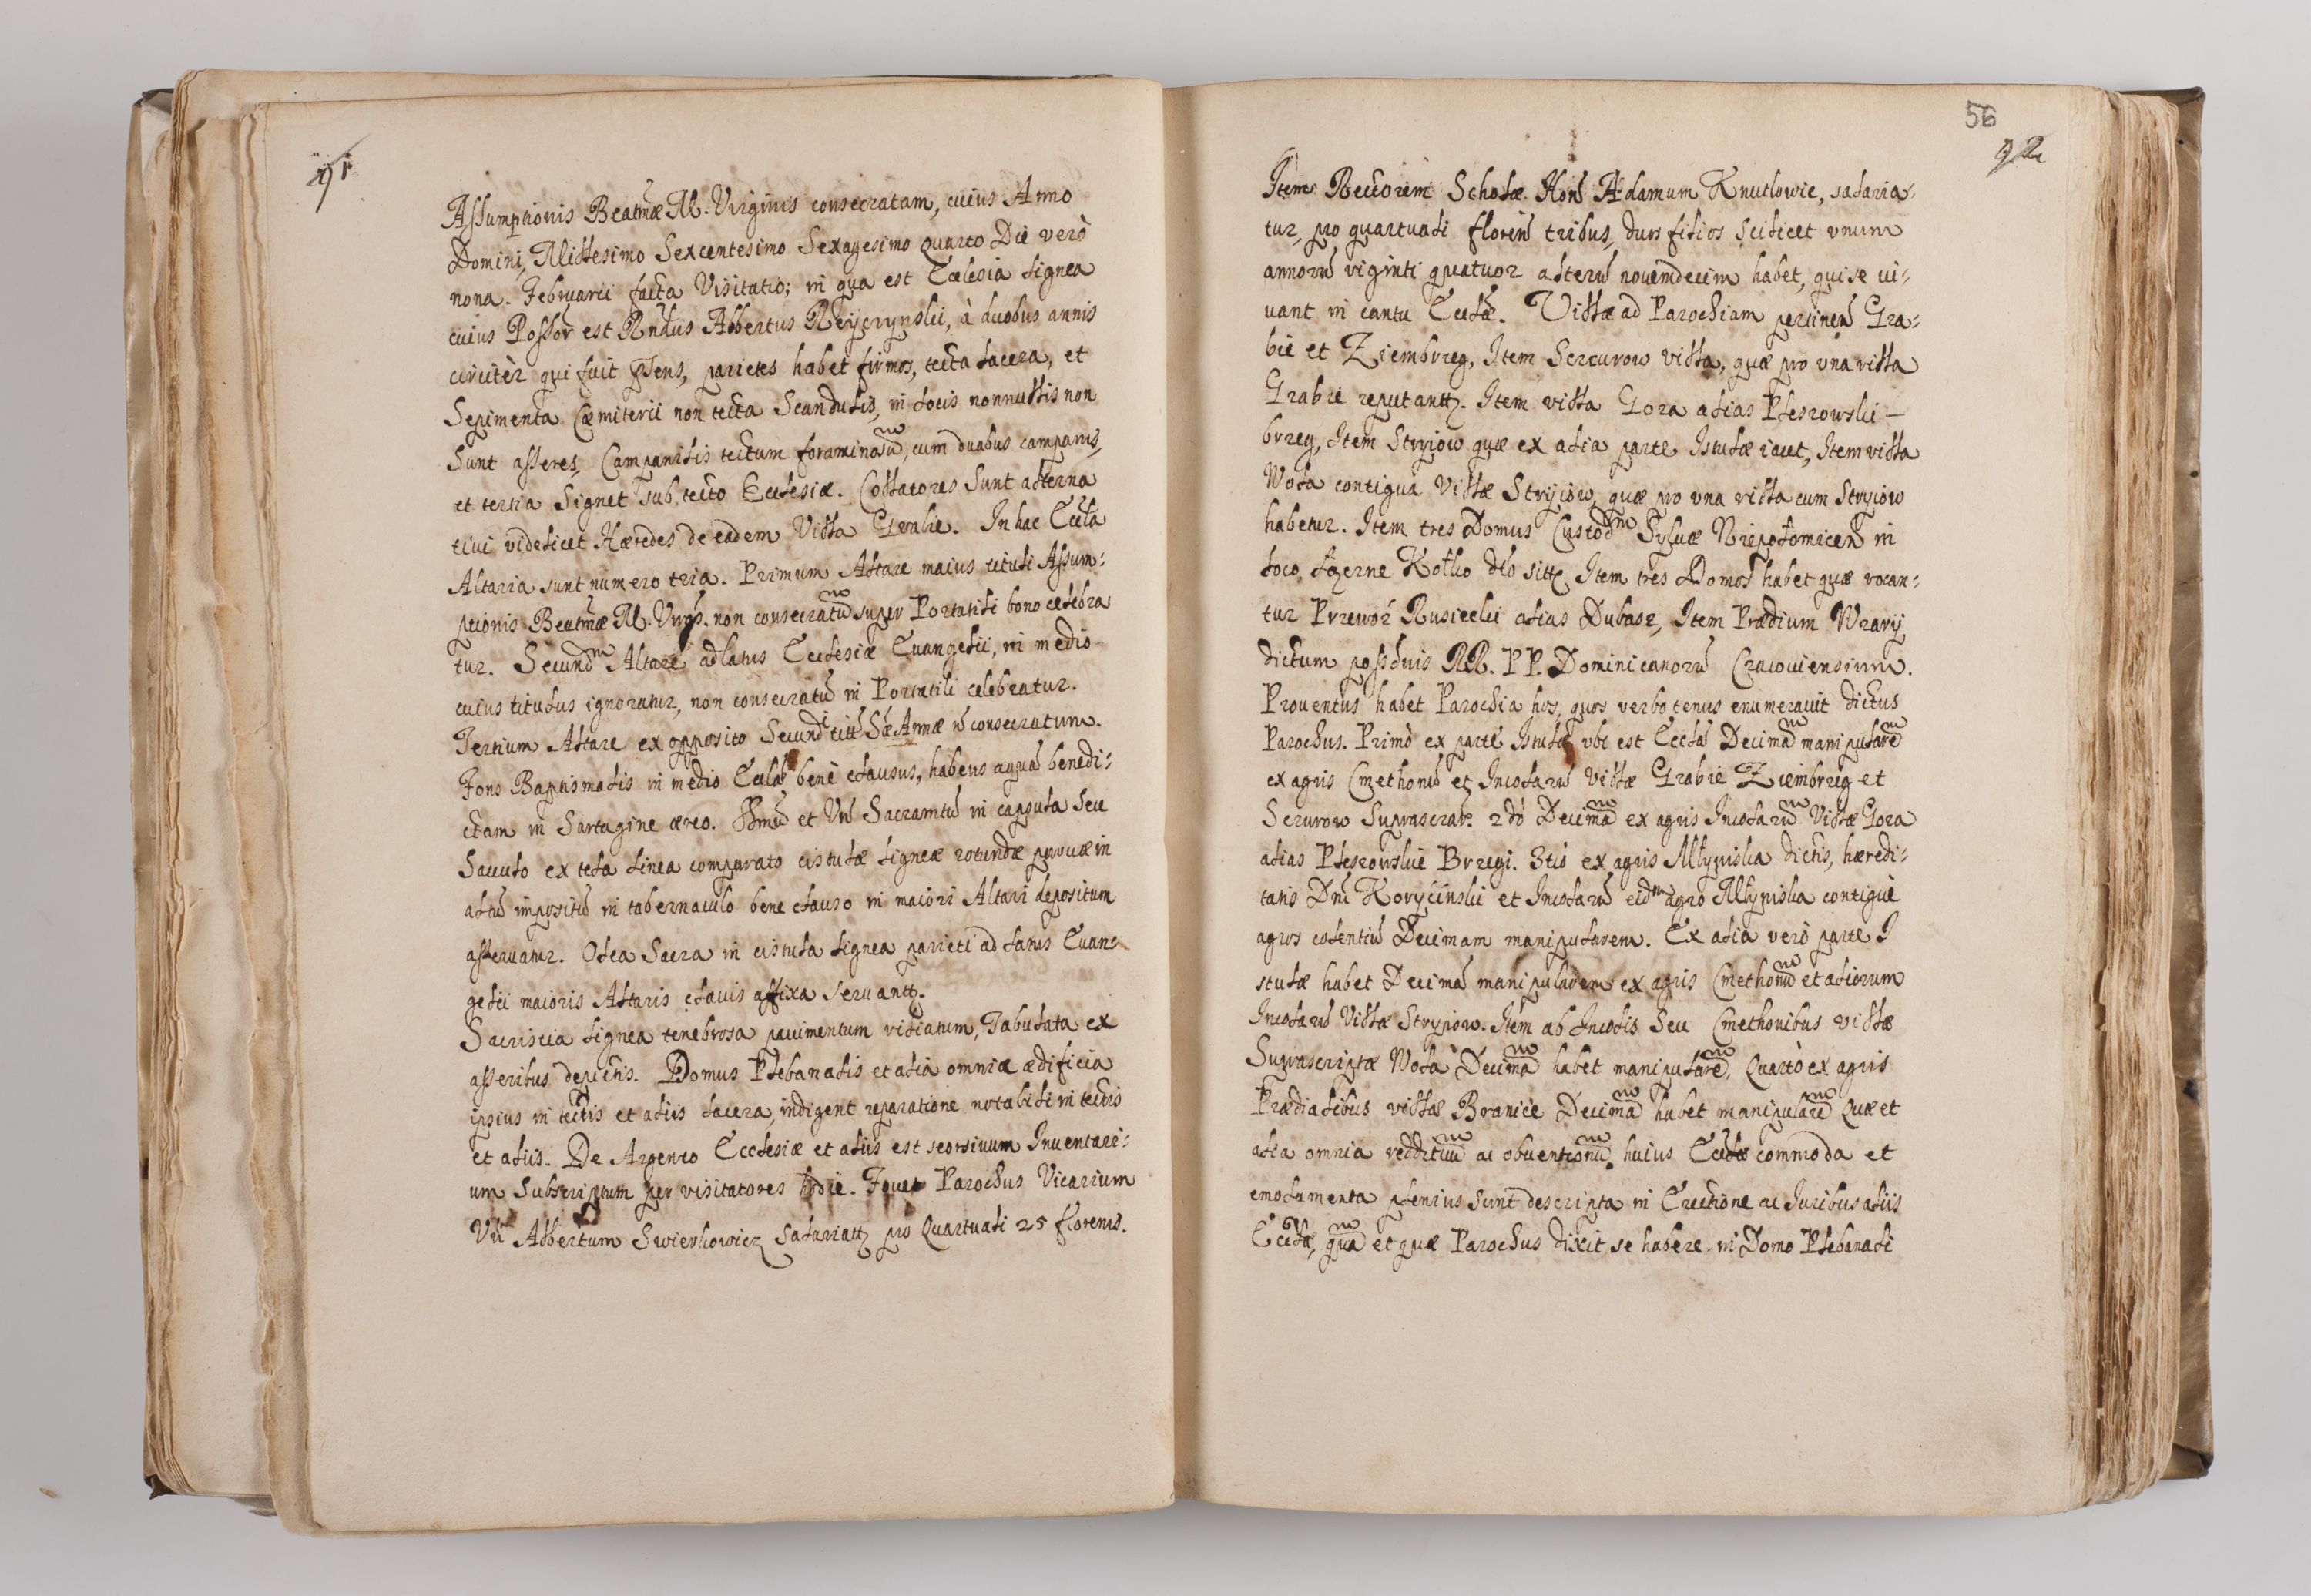 91
Assumptionis Beatmæ M. Virginis consecratam, cuius Anno
Domini, Millesimo Sexcentesimo Sexagesimo Quarto Die verò
nona. Februarii facta Visitatio; in qua est Ecclesia lignea
cuius Possor est Rndus Albertus, à duobus annis
circitèr qui fuit pñs, parietes habet firmos, tecta lacera, et
Sepimenta Cæmiterii non tecta Scandulis, in locis nonnullis non
Sunt asseres, Campanilis tectum foraminosũ, cum duabus campanis,
et tertia Signet sub tecto Ecclesiæ. Collatores Sunt alterna
tiui videlicet Hæredes de eadem Villa Grabie. In hac Eccla
Altaria sunt numero tria. Primum Altare maius tituli Assum:
ptionis Beatmæ M. Virgs. non consecratũ super Portatili bono celebra
tur. Secundm Altare ad latus Ecclesiæ Euangelii, in medio
cuius titulus ignoratur, non consecratũ in Portatili celebratur.
Tertium Altare ex opposito Secundi titł Sæ Annæ ñ consecratum.
Fons Baptismatis in medio Ecclæ benè clausus, habens aquã benedi:
ctam in Sartagine æreo. Ssmũ et Vñ Sacramtũ in capsula Seu
Sacculo ex tela linea comparato cistulæ ligneæ rotundæ paruæ in
altũ impositũ in tabernaculo bene clauso in maiori Altari depositum
asseruatur. Olea Sacra in cistula lignea parieti ad latus Euan:
gelii maioris Altaris clauis affixa seruantꝫ.
Sacristia lignea tenebrosa pauimentum vitiatum, Tabulata ex
asseribus depictis. Domus Plebanalis et alia omnia ædificia
ipsius in tectis et aliis lacera, indigent reparatione notabili in tectis
et aliis. De Argento Ecclesiæ et aliis est seorsiuum Inuentari:
um Subscriptum per visitatores hodie. Fouet Parochus Vicarium
Vñ Albertum Swierkowicz Salariatꝫ pro Quartuali 25 florenis.
56
92
Item Rectorem Scholæ Hon Adamum Knutlowic, salaria:
tur, pro quartuali floreñ tribus, duos filios Scilicet vnum
annorũ viginti quatuor alterũ nouemdecim habet, qui se iu:
uant in cantu Ecclæ. Villæ ad Parochiam pertineñ Gra:
bie et Ziembrzeg, Item Sercurow villa, quæ pro vna villa
Grabie reputantꝫ. Item villa Gora alias Pleszowski –
brzeg, Item Stryiow quæ ex alia parte Istulæ iacet, Item villa
Wola contigua Villæ Stryiow, quæ pro vna villa cum Stryiow
habetur. Item tres Domus Custodm Syluæ Niepolomiceñ in
loco Czerne Kotło dto sittꝫ Item tres Domos habet quæ vocan:
tur Przewóz Rusiecki alias Dubasz, Item Prædium Wrarij
dictum possđuis RR. PP. Dominicanorũ Cracouiensium.
Prouentus habet Parochia hos, quos verbo tenus enumerauit dictus
Parochus. Primò ex parte Istulæ vbi est Eccla Decimã manipularẽ
ex agris Cmethonũ et Incolarũ Villæ Grabie Ziembrzeg et
Serurow Suprascrap. 2dò Decimã ex agris Incolarũ Villæ Gora
alias Pleszowskie Brzegi. 3tiò ex agris Młynislia dictis, hæredi:
tatis Dni Koryćinslii et Incolarũ eidm agro Młynislia contiguè
agros colentiũ Decimam manipularem. Ex alia verò parte I
stulæ habet Decimã manipularem ex agris Cmethonũ et aliorum
Incolarũ Villæ Stryiow. Itẽm ab Incolis Seu Cmethonibus villæ
Suprascriptæ Wola Decimã habet manipularẽ, Quartò ex agris
Prædialibus villæ Branice Decimã habet manipularẽ Quæ et
alia omnia reddituũ ac obuentionũ huius Ecclæ commoda et
emolumenta plenius sunt descripta in Erectione ac Iuribus aliis
Ecclæ, quã et quæ Parochus dixit se habere in Domo Plebanali